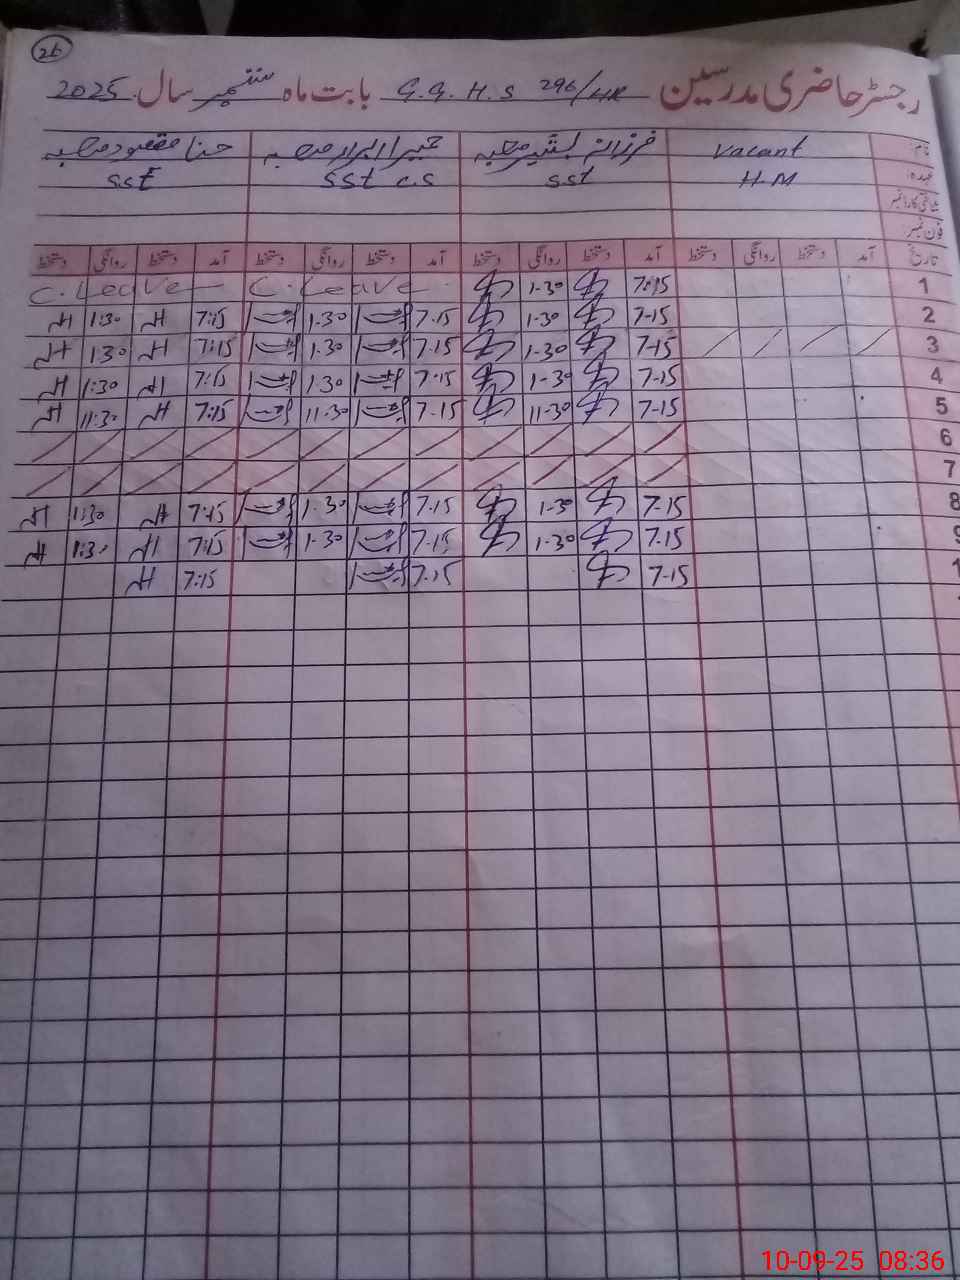 26
رجسٹر حاضری مدرسین G.G.H.S 296/HR بابت ماہ ستمبر سال 2025
نام: Vacant فرزانہ بشیر صاحبہ حمیرا ابرار صاحبہ حنا مقصود صاحبہ
عہدہ: H.M SST SST C.S SST
شناختی کارڈ نمبر
فون نمبر:
تاریخ آمد دستخط روانگی دستخط آمد دستخط روانگی دستخط آمد دستخط روانگی دستخط آمد دستخط روانگی دستخط
1 7:15 1-30 C. Leave C. Leave
2 7-15 1-30 7.15 1.30 7:15 1:30
3 7-15 1-30 7.15 1.30 7:15 1:30
4 7-15 1-30 7.15 1.30 7:15 1:30
5 7-15 11-30 7-15 11-30 7:15 11:30
6
7
8 7-15 1-30 7.15 1.30 7:15 1:30
9 7.15 1-30 7.15 1.30 7:15 1:30
7-15 7.15 7:15
10-09-25 08:36